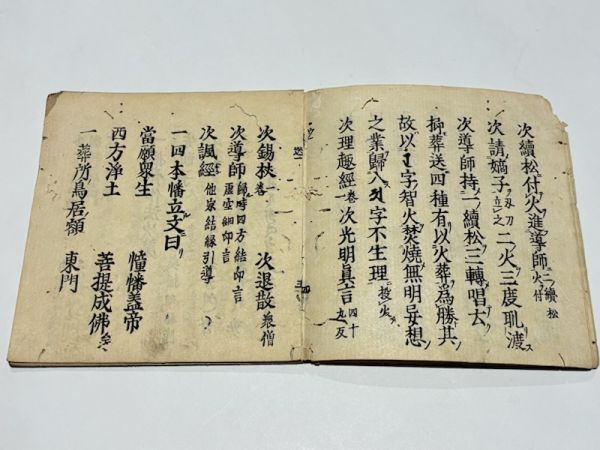 次續松付火進導師二續松火付
次請嫡子
二火三度
次導師持二續松三轉唱云
抑葬送四種有以火葬為勝其
故以字智火焚燒無明妄想
之業歸入字不生理
次理趣經一卷 次光明真言四十九反
次錫杖一卷 次退散衆僧
次導師 歸時四方結印言 虚空網印言
次諷經 他家結縁引導
一 四本幡立文曰
當願衆生 幢幡蓋帝
西方浄土 菩提成佛
一 葬所鳥居額 東門